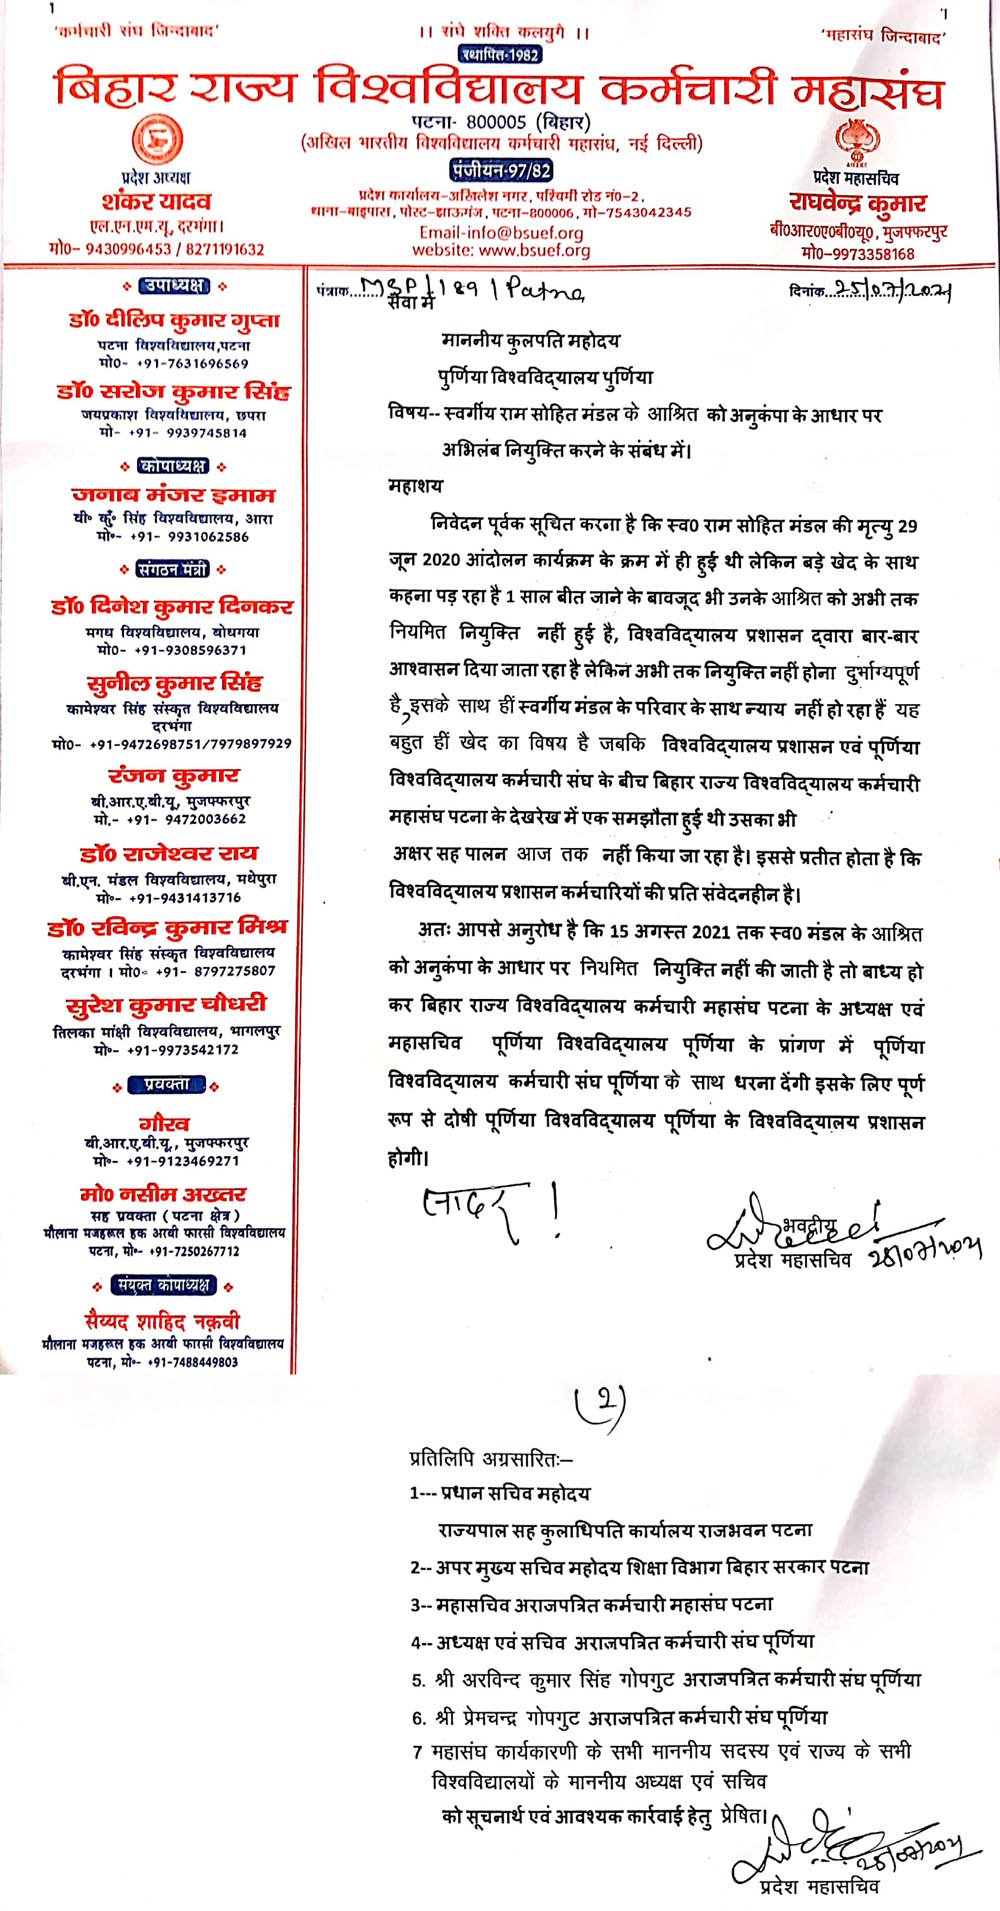 1
'1
'कर्मचारी संघ जिन्दाबाद'
।। संघे शक्ति कलयुगे ।।
'महासंघ जिन्दाबाद'
स्थापित-1982
बिहार राज्य विश्वविद्यालय कर्मचारी महासंघ
पटना- 800005 (बिहार)
(अखिल भारतीय विश्वविद्यालय कर्मचारी महासंघ, नई दिल्ली)
पंजीयन-97/82
प्रदेश कार्यालय-अखिलेश नगर, पश्चिमी रोड नं०-2,
थाना-बाइपास, पोस्ट-झाऊगंज, पटना-800006, मो-7543042345
Email-info@bsuef.org
website: www.bsuef.org
प्रदेश अध्यक्ष
शंकर यादव
एल.एन.एम.यू., दरभंगा।
मो०- 9430996453 / 8271191632
प्रदेश महासचिव
राघवेन्द्र कुमार
बी०आर०ए०बी०यू०, मुजफ्फरपुर
मो०-9973358168
उपाध्यक्ष
डॉ० दीलिप कुमार गुप्ता
पटना विश्वविद्यालय,पटना
मो०- +91-7631696569
डॉ० सरोज कुमार सिंह
जयप्रकाश विश्वविद्यालय, छपरा
मो- +91- 9939745814
कोपाध्यक्ष
जनाब मंजर इमाम
वी० कुँ० सिंह विश्वविद्यालय, आरा
मो०- +91- 9931062586
संगठन मंत्री
डॉ० दिनेश कुमार दिनकर
मगध विश्वविद्यालय, बोधगया
मो०- +91-9308596371
सुनील कुमार सिंह
कामेश्वर सिंह संस्कृत विश्वविद्यालय
दरभंगा
मो०- +91-9472698751/7979897929
रंजन कुमार
बी.आर.ए.बी.यू., मुजफ्फरपुर
मो.- +91- 9472003662
डॉ० राजेश्वर राय
बी.एन. मंडल विश्वविद्यालय, मधेपुरा
मो०- +91-9431413716
डॉ० रविन्द्र कुमार मिश्र
कामेश्वर सिंह संस्कृत विश्वविद्यालय
दरभंगा । मो०- +91- 8797275807
सुरेश कुमार चौधरी
तिलका मांक्षी विश्वविद्यालय, भागलपुर
मो०- +91-9973542172
प्रवक्ता
गौरव
बी.आर.ए.बी.यू., मुजफ्फरपुर
मो०- +91-9123469271
मो० नसीम अख्तर
सह प्रवक्ता ( पटना क्षेत्र )
मौलाना मजहरूल हक अरबी फारसी विश्वविद्यालय
पटना, मो०- +91-7250267712
संयुक्त कोपाध्यक्ष
सैय्यद शाहिद नक़वी
मौलाना मजहरूल हक अरबी फारसी विश्वविद्यालय
पटना, मो०- +91-7488449803
पंत्राक......MSP/189/Patna
दिनांक..25/07/2021
सेवा में
माननीय कुलपति महोदय
पुर्णिया विश्वविद्यालय पुर्णिया
विषय-- स्वर्गीय राम सोहित मंडल के आश्रित को अनुकंपा के आधार पर
अभिलंब नियुक्ति करने के संबंध में।
महाशय
निवेदन पूर्वक सूचित करना है कि स्व0 राम सोहित मंडल की मृत्यु 29
जून 2020 आंदोलन कार्यक्रम के क्रम में ही हुई थी लेकिन बड़े खेद के साथ
कहना पड़ रहा है 1 साल बीत जाने के बावजूद भी उनके आश्रित को अभी तक
नियमित नियुक्ति नहीं हुई है, विश्वविद्यालय प्रशासन द्वारा बार-बार
आश्वासन दिया जाता रहा है लेकिन अभी तक नियुक्ति नहीं होना दुर्भाग्यपूर्ण
है,इसके साथ हीं स्वर्गीय मंडल के परिवार के साथ न्याय नहीं हो रहा हैं यह
बहुत हीं खेद का विषय है जबकि विश्वविद्यालय प्रशासन एवं पूर्णिया
विश्वविद्यालय कर्मचारी संघ के बीच बिहार राज्य विश्वविद्यालय कर्मचारी
महासंघ पटना के देखरेख में एक समझौता हुई थी उसका भी
अक्षर सह पालन आज तक नहीं किया जा रहा है। इससे प्रतीत होता है कि
विश्वविद्यालय प्रशासन कर्मचारियों की प्रति संवेदनहीन है।
अतः आपसे अनुरोध है कि 15 अगस्त 2021 तक स्व0 मंडल के आश्रित
को अनुकंपा के आधार पर नियमित नियुक्ति नहीं की जाती है तो बाध्य हो
कर बिहार राज्य विश्वविद्यालय कर्मचारी महासंघ पटना के अध्यक्ष एवं
महासचिव पूर्णिया विश्वविद्यालय पूर्णिया के प्रांगण में पूर्णिया
विश्वविद्यालय कर्मचारी संघ पूर्णिया के साथ धरना देंगी इसके लिए पूर्ण
रूप से दोषी पूर्णिया विश्वविद्यालय पूर्णिया के विश्वविद्यालय प्रशासन
होगी।
सादर !
भवदीय
प्रदेश महासचिव
(2)
प्रतिलिपि अग्रसारितः—
1--- प्रधान सचिव महोदय
राज्यपाल सह कुलाधिपति कार्यालय राजभवन पटना
2-- अपर मुख्य सचिव महोदय शिक्षा विभाग बिहार सरकार पटना
3-- महासचिव अराजपत्रित कर्मचारी महासंघ पटना
4-- अध्यक्ष एवं सचिव अराजपत्रित कर्मचारी संघ पूर्णिया
5. श्री अरविन्द कुमार सिंह गोपगुट अराजपत्रित कर्मचारी संघ पूर्णिया
6. श्री प्रेमचन्द्र गोपगुट अराजपत्रित कर्मचारी संघ पूर्णिया
7 महासंघ कार्यकारणी के सभी माननीय सदस्य एवं राज्य के सभी
विश्वविद्यालयों के माननीय अध्यक्ष एवं सचिव
को सूचनार्थ एवं आवश्यक कार्रवाई हेतु प्रेषित।
प्रदेश महासचिव